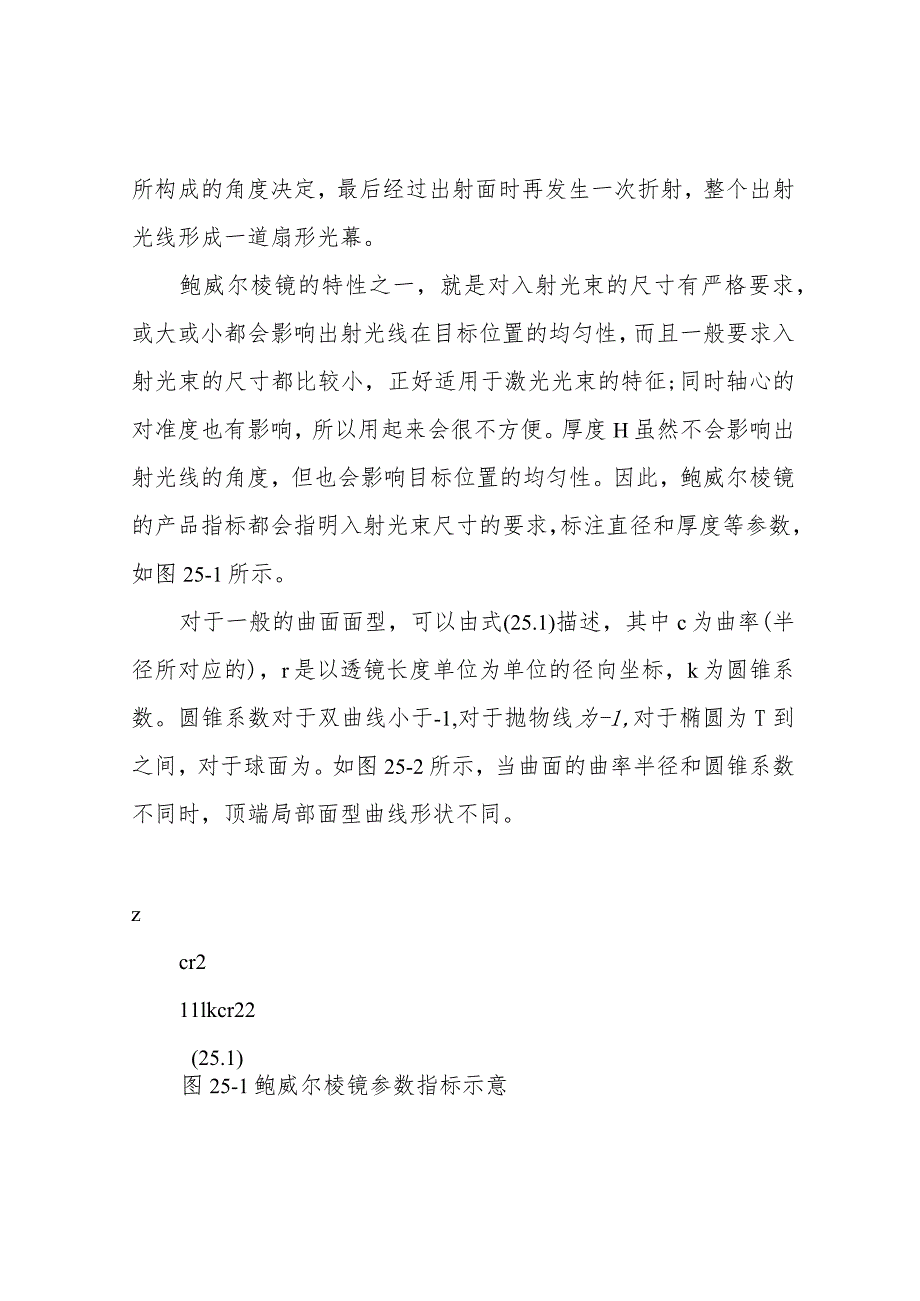 所构成的角度决定，最后经过出射面时再发生一次折射，整个出射
光线形成一道扇形光幕。
鲍威尔棱镜的特性之一，就是对入射光束的尺寸有严格要求，
或大或小都会影响出射光线在目标位置的均匀性，而且一般要求入
射光束的尺寸都比较小，正好适用于激光光束的特征;同时轴心的
对准度也有影响，所以用起来会很不方便。厚度 H 虽然不会影响出
射光线的角度，但也会影响目标位置的均匀性。因此，鲍威尔棱镜
的产品指标都会指明入射光束尺寸的要求,标注直径和厚度等参数，
如图 25-1 所示。
对于一般的曲面面型，可以由式(25.1)描述，其中 c 为曲率(半
径所对应的)，r 是以透镜长度单位为单位的径向坐标，k 为圆锥系
数。圆锥系数对于双曲线小于-1,对于抛物线为-1,对于椭圆为 T 到
之间，对于球面为。如图 25-2 所示，当曲面的曲率半径和圆锥系数
不同时，顶端局部面型曲线形状不同。
z
cr2
11lkcr22
(25.1)
图 25-1 鲍威尔棱镜参数指标示意